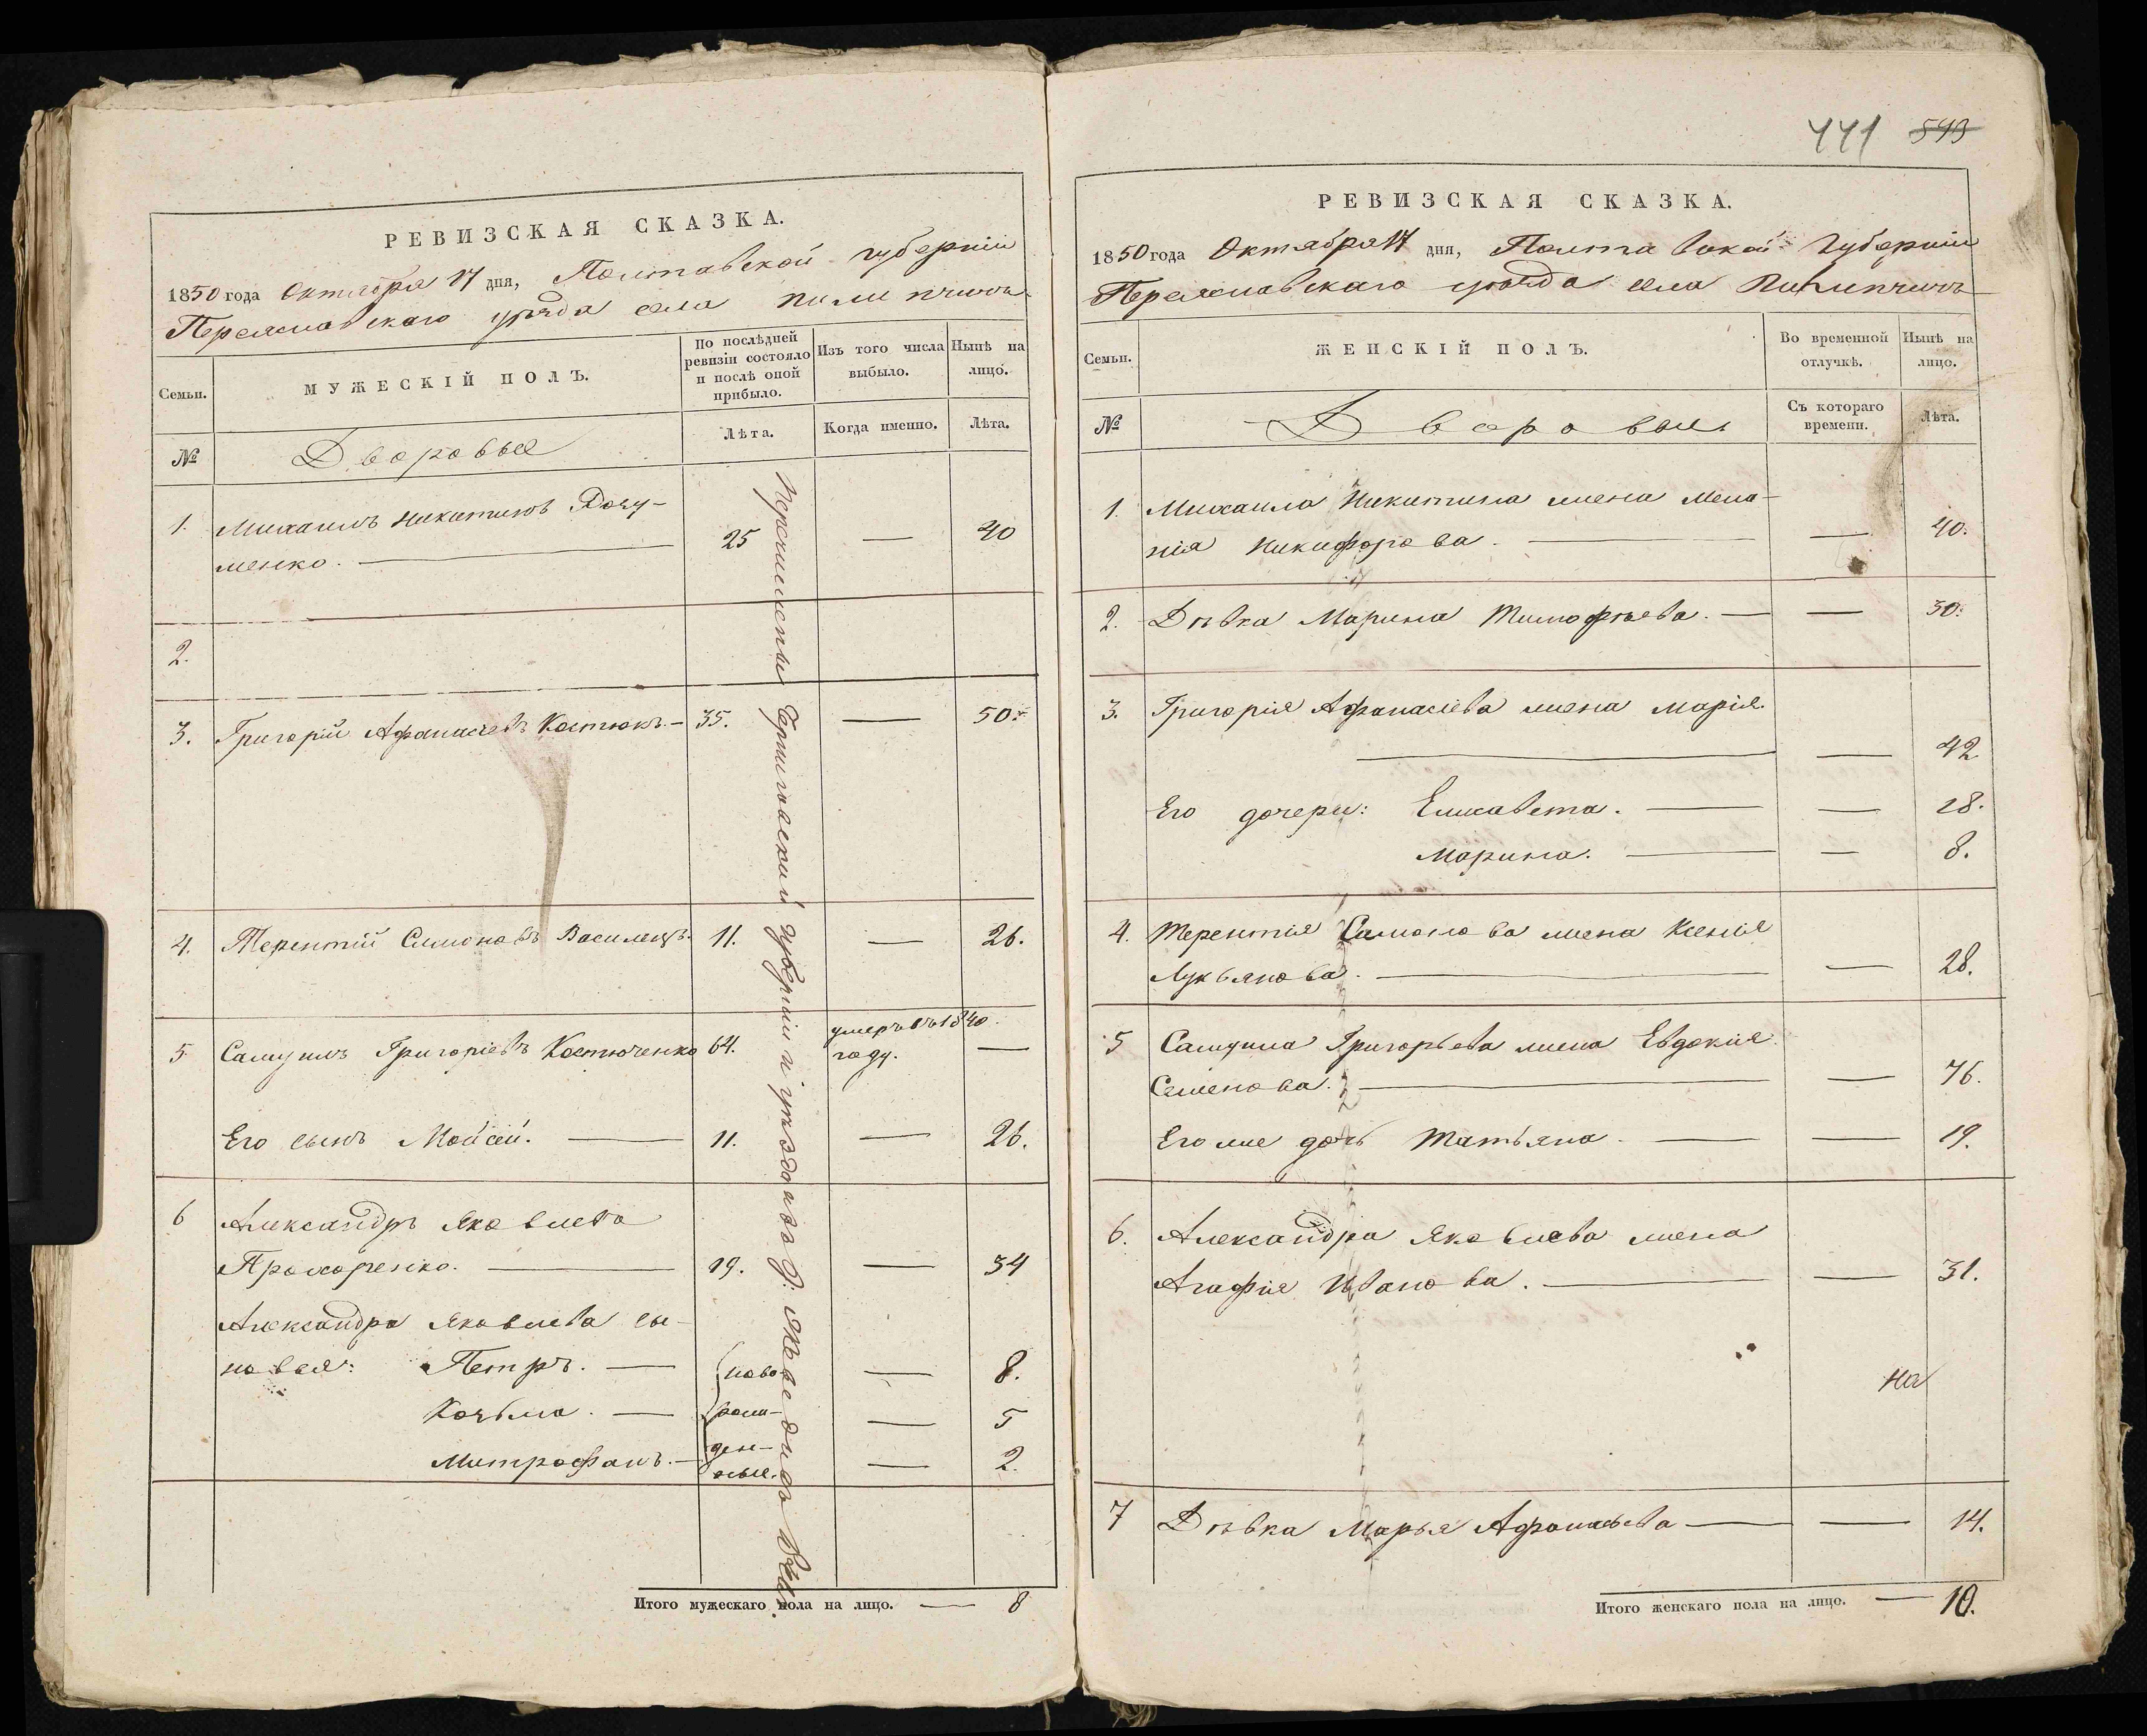 РЕВИЗСКАЯ СКАЗКА.
1850 года Октября 17 дня, Полтавской губернiи
Переяславскаго уѣзда села Пилипчичъ
Семьи. МУЖЕСКIЙ ПОЛЪ. По послѣдней ревизiи состояло и послѣ оной прибыло. Изъ того числа выбыло. Нынѣ на лицо.
№ Дворовые Лѣта. Когда именно. Лѣта.
1. Михаилъ Никитинъ
менко. — 25 — 40
2.
3. Григорiй Афанасьевъ Костюкъ. — 35. — 50.
4. Терентiй Симоновъ Василецъ. 11. — 26.
5 Самуилъ Григорiевъ Костюченко 64. умеръ въ 1840 году. —
Его сынъ Мойсей. — 11. — 26.
6 Александръ Яковлева
Прохоренко. — 19. — 34
Александра Яковлева сы-
новья: Петръ. — ново- — 8.
Козьма. — рож- — 5
Митрофанъ. — ден- — 2.
ные.
Перечислены Черниговской губернiи
Итого мужескаго пола на лицо. — 8
441 593
РЕВИЗСКАЯ СКАЗКА.
1850 года Октября 17 дня, Полтавской Губернiи
Переяславскаго уѣзда села Пилипчичъ
Семьи. ЖЕНСКIЙ ПОЛЪ. Во временной отлучкѣ. Нынѣ на лицо.
№ Дворовые Съ котораго времени. Лѣта.
1. Михаила Никитина жена Мела-
нiя Никифорова. — — 40.
2. Дѣвка Марина Тимофѣева. — — 30.
3. Григорiя Афанасiева жена Марiя.
— — 42
Его дочери: Елисавета. — — 18.
Марина. — — 8.
4. Терентiя Симонова жена Ксенiя
Лукьянова. — — 28.
5 Самуила Григорьева жена Евдокiя
Семенова. — — 76.
Его же дочь Татьяна — — 19.
6. Александра Яковлева жена
Агафiя Иванова. — — 31.
на
7 Дѣвка Марья Афанасьева — — 14.
Итого женскаго пола на лицо. — 10.